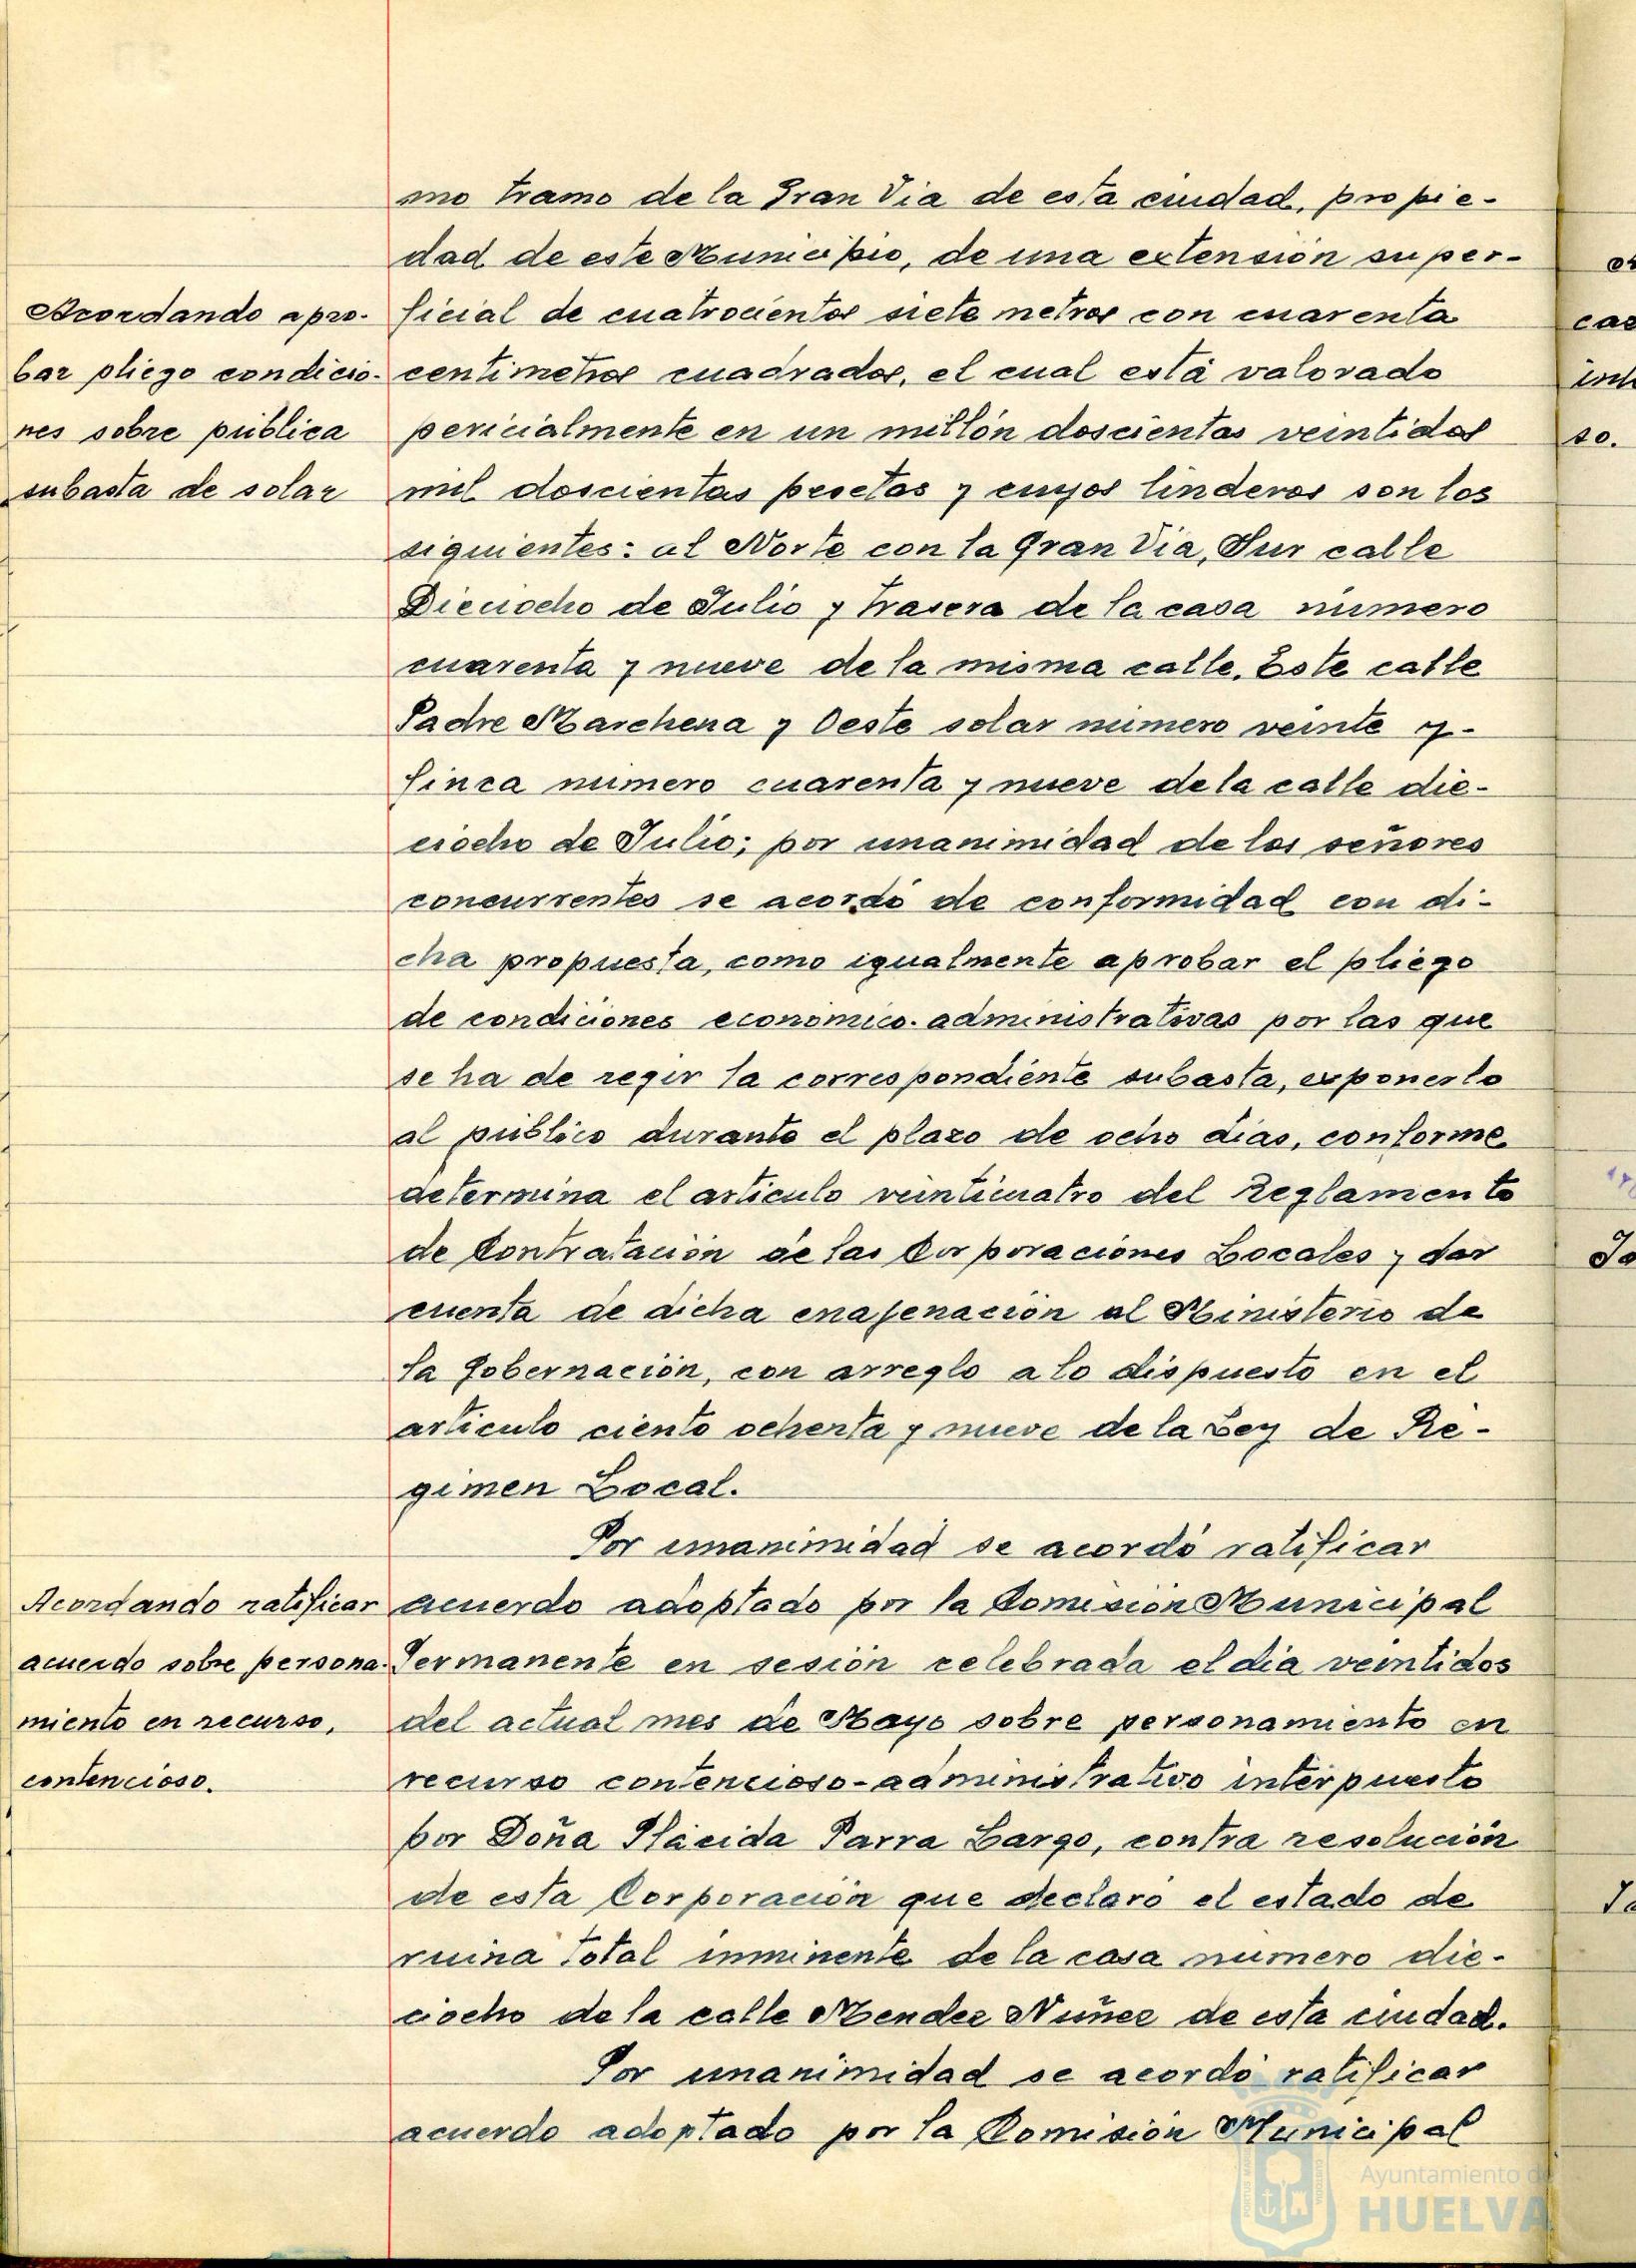 mo tramo de la Gran Via de esta ciudad, propie-
dad de este Municipio, de una extensión super-
Acordando apro-
bar pliego condicio-
nes sobre pública
subasta de solar
ficial de cuatrocientos siete metros con cuarenta
centimetros cuadrados, el cual está valorado
pericialmente en un millón doscientas veintidos
mil doscientas pesetas y cuyos linderos son los
siguientes: al Norte con la Gran Via, Sur calle
Dieciocho de Julio y trasera de la casa número
cuarenta y nueve de la misma calle. Este calle
Padre Marchena y Oeste solar número veinte y-
finca número cuarenta y nueve de la calle die-
ciocho de Julio; por unanimidad de los señores
concurrentes se acordó de conformidad con di-
cha propuesta, como igualmente aprobar el pliego
de condiciones económico-administrativas por las que
se ha de regir la correspondiente subasta, exponerlo
al público durante el plazo de ocho días, conforme
determina el artículo veinticuatro del Reglamento
de Contratación de las Corporaciones Locales y dar
cuenta de dicha enajenación al Ministerio de
la Gobernación, con arreglo a lo dispuesto en el
artículo ciento ochenta y nueve de la Ley de Ré-
gimen Local.
Por unanimidad se acordó ratificar
Acordando ratificar
acuerdo sobre persona-
miento en recurso,
contencioso.
acuerdo adoptado por la Comisión Municipal
Permanente en sesión celebrada el dia veintidos
del actual mes de Mayo sobre personamiento en
recurso contencioso-administrativo interpuesto
por Doña Plácida Parra Largo, contra resolución
de esta Corporación que declaró el estado de
ruina total inminente de la casa número die-
ciocho de la calle Mendez Nuñez de esta ciudad.
Por unanimidad se acordó ratificar
acuerdo adoptado por la Comisión Municipal
Ayuntamiento de
HUELVA